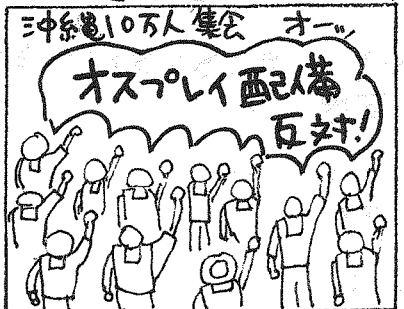 沖縄10万人集会 オーッ
オスプレイ配備
反対!